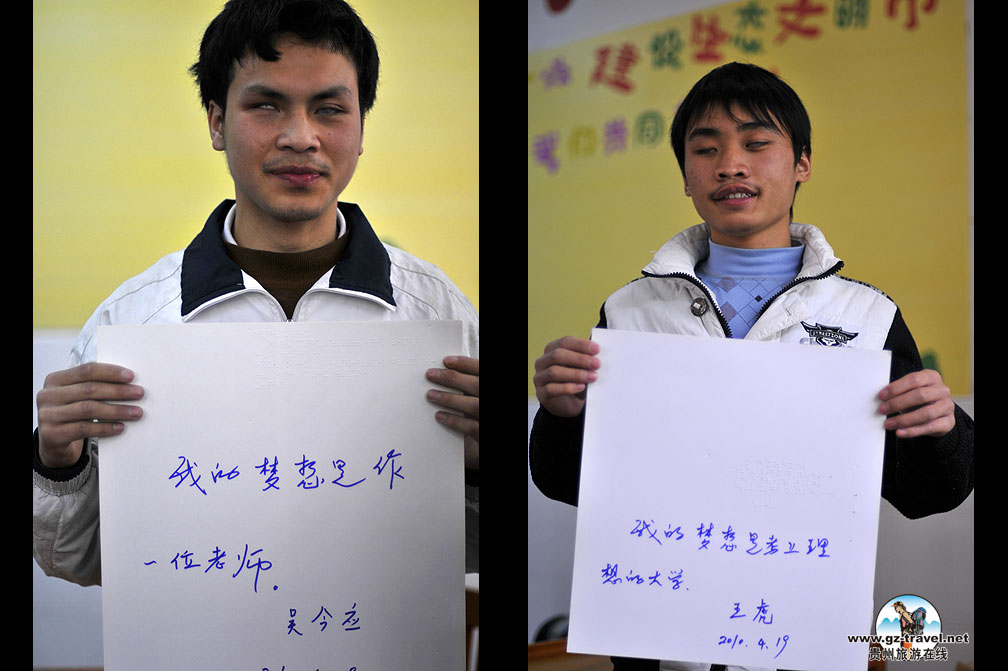 我的梦想是作
一位老师。
吴今应
建设生态文明市
我们共同
我的梦想是考上理
想的大学.
王虎
2010.4.19
www.gz-travel.net
贵州旅游在线